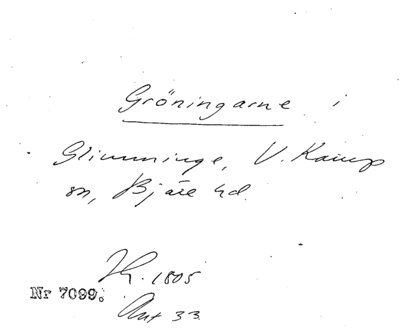 Gröningarne i
Glimminge, V. Karup
sn, Bjäre hd.
H. 1805
Nr 7099.
Ant 33